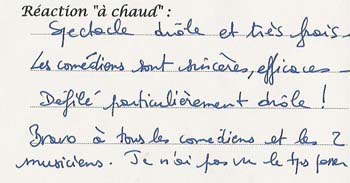 Réaction "à chaud" :
Spectacle drôle et très frais
Les comédiens sont sincères, efficaces
Défilé particulièrement drôle !
Bravo à tous les comédiens et les 2
musiciens. Je n'ai pas vu le tps passer